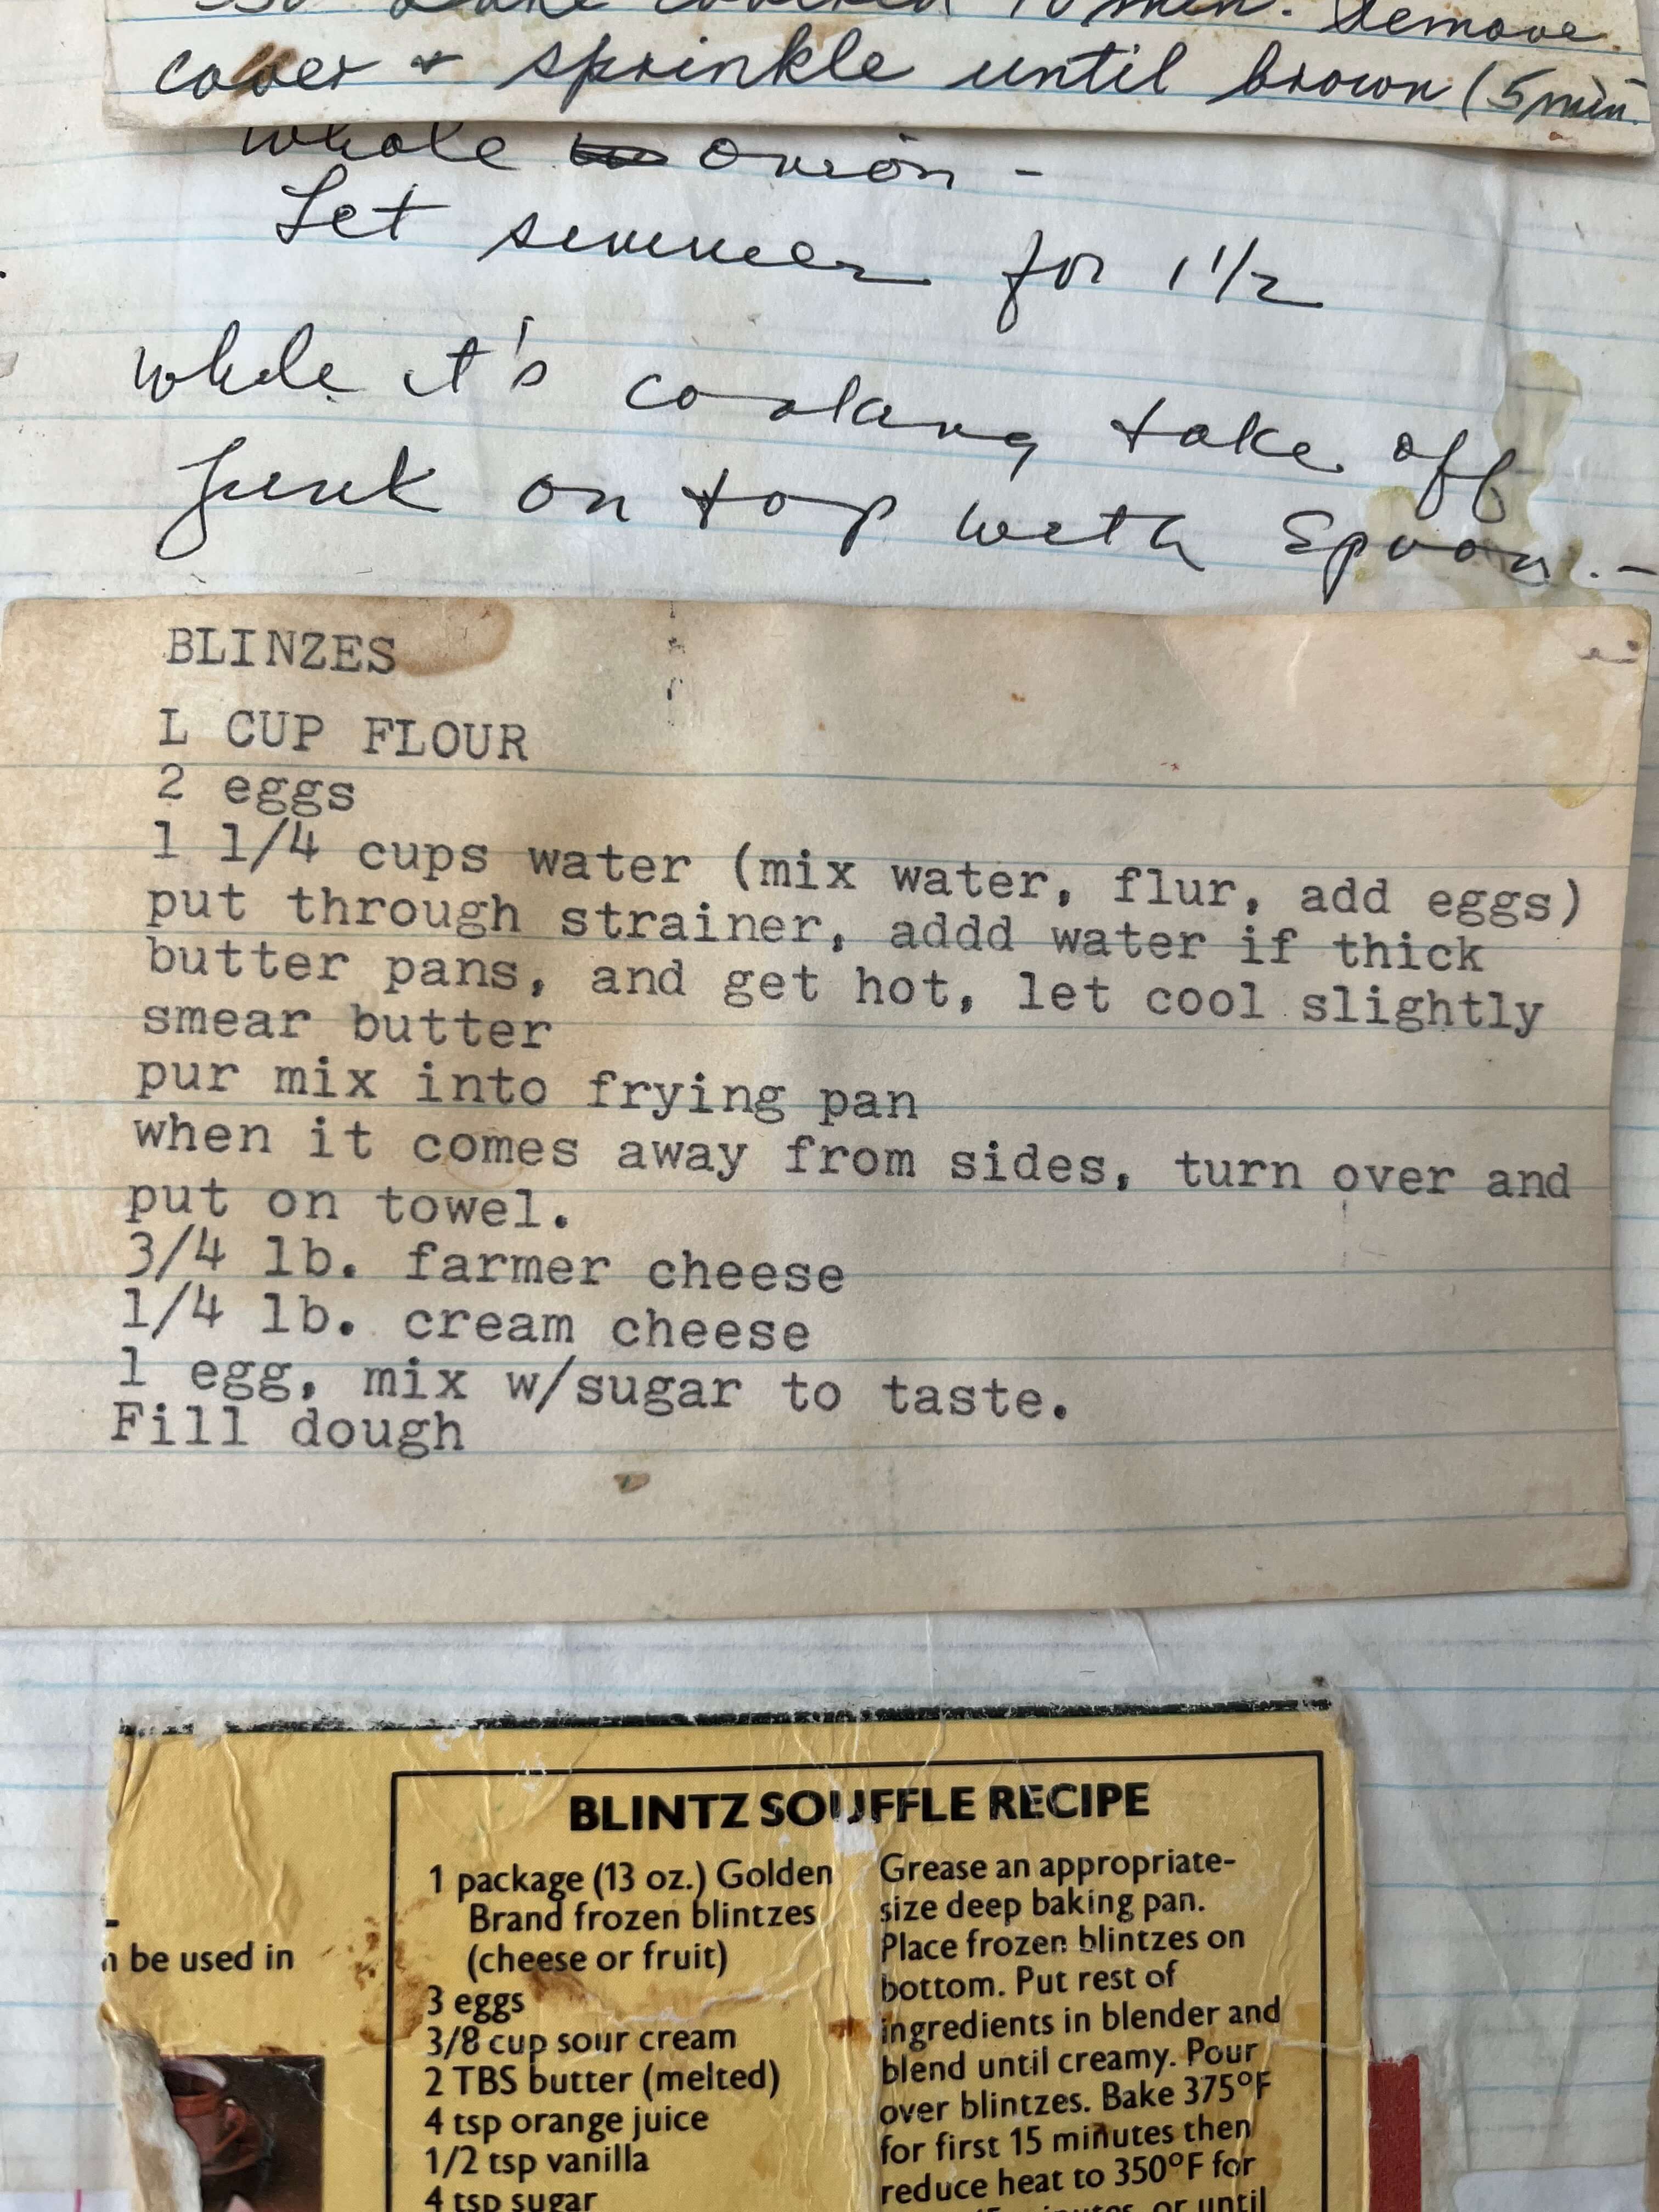 covered 10 min. Remove
cover + sprinkle until brown (5 min.
whole onion -
Let simmer for 1 1/2
while it's cooling take off
junk on top with spoon. -
BLINZES
L CUP FLOUR
2 eggs
1 1/4 cups water (mix water, flur, add eggs)
put through strainer, addd water if thick
butter pans, and get hot, let cool slightly
smear butter
pur mix into frying pan
when it comes away from sides, turn over and
put on towel.
3/4 lb. farmer cheese
1/4 lb. cream cheese
1 egg, mix w/sugar to taste.
Fill dough
be used in
BLINTZ SOUFFLE RECIPE
1 package (13 oz.) Golden
Brand frozen blintzes
(cheese or fruit)
3 eggs
3/8 cup sour cream
2 TBS butter (melted)
4 tsp orange juice
1/2 tsp vanilla
4 tsp sugar
Grease an appropriate-
size deep baking pan.
Place frozen blintzes on
bottom. Put rest of
ingredients in blender and
blend until creamy. Pour
over blintzes. Bake 375°F
for first 15 minutes then
reduce heat to 350°F for
minutes, or until